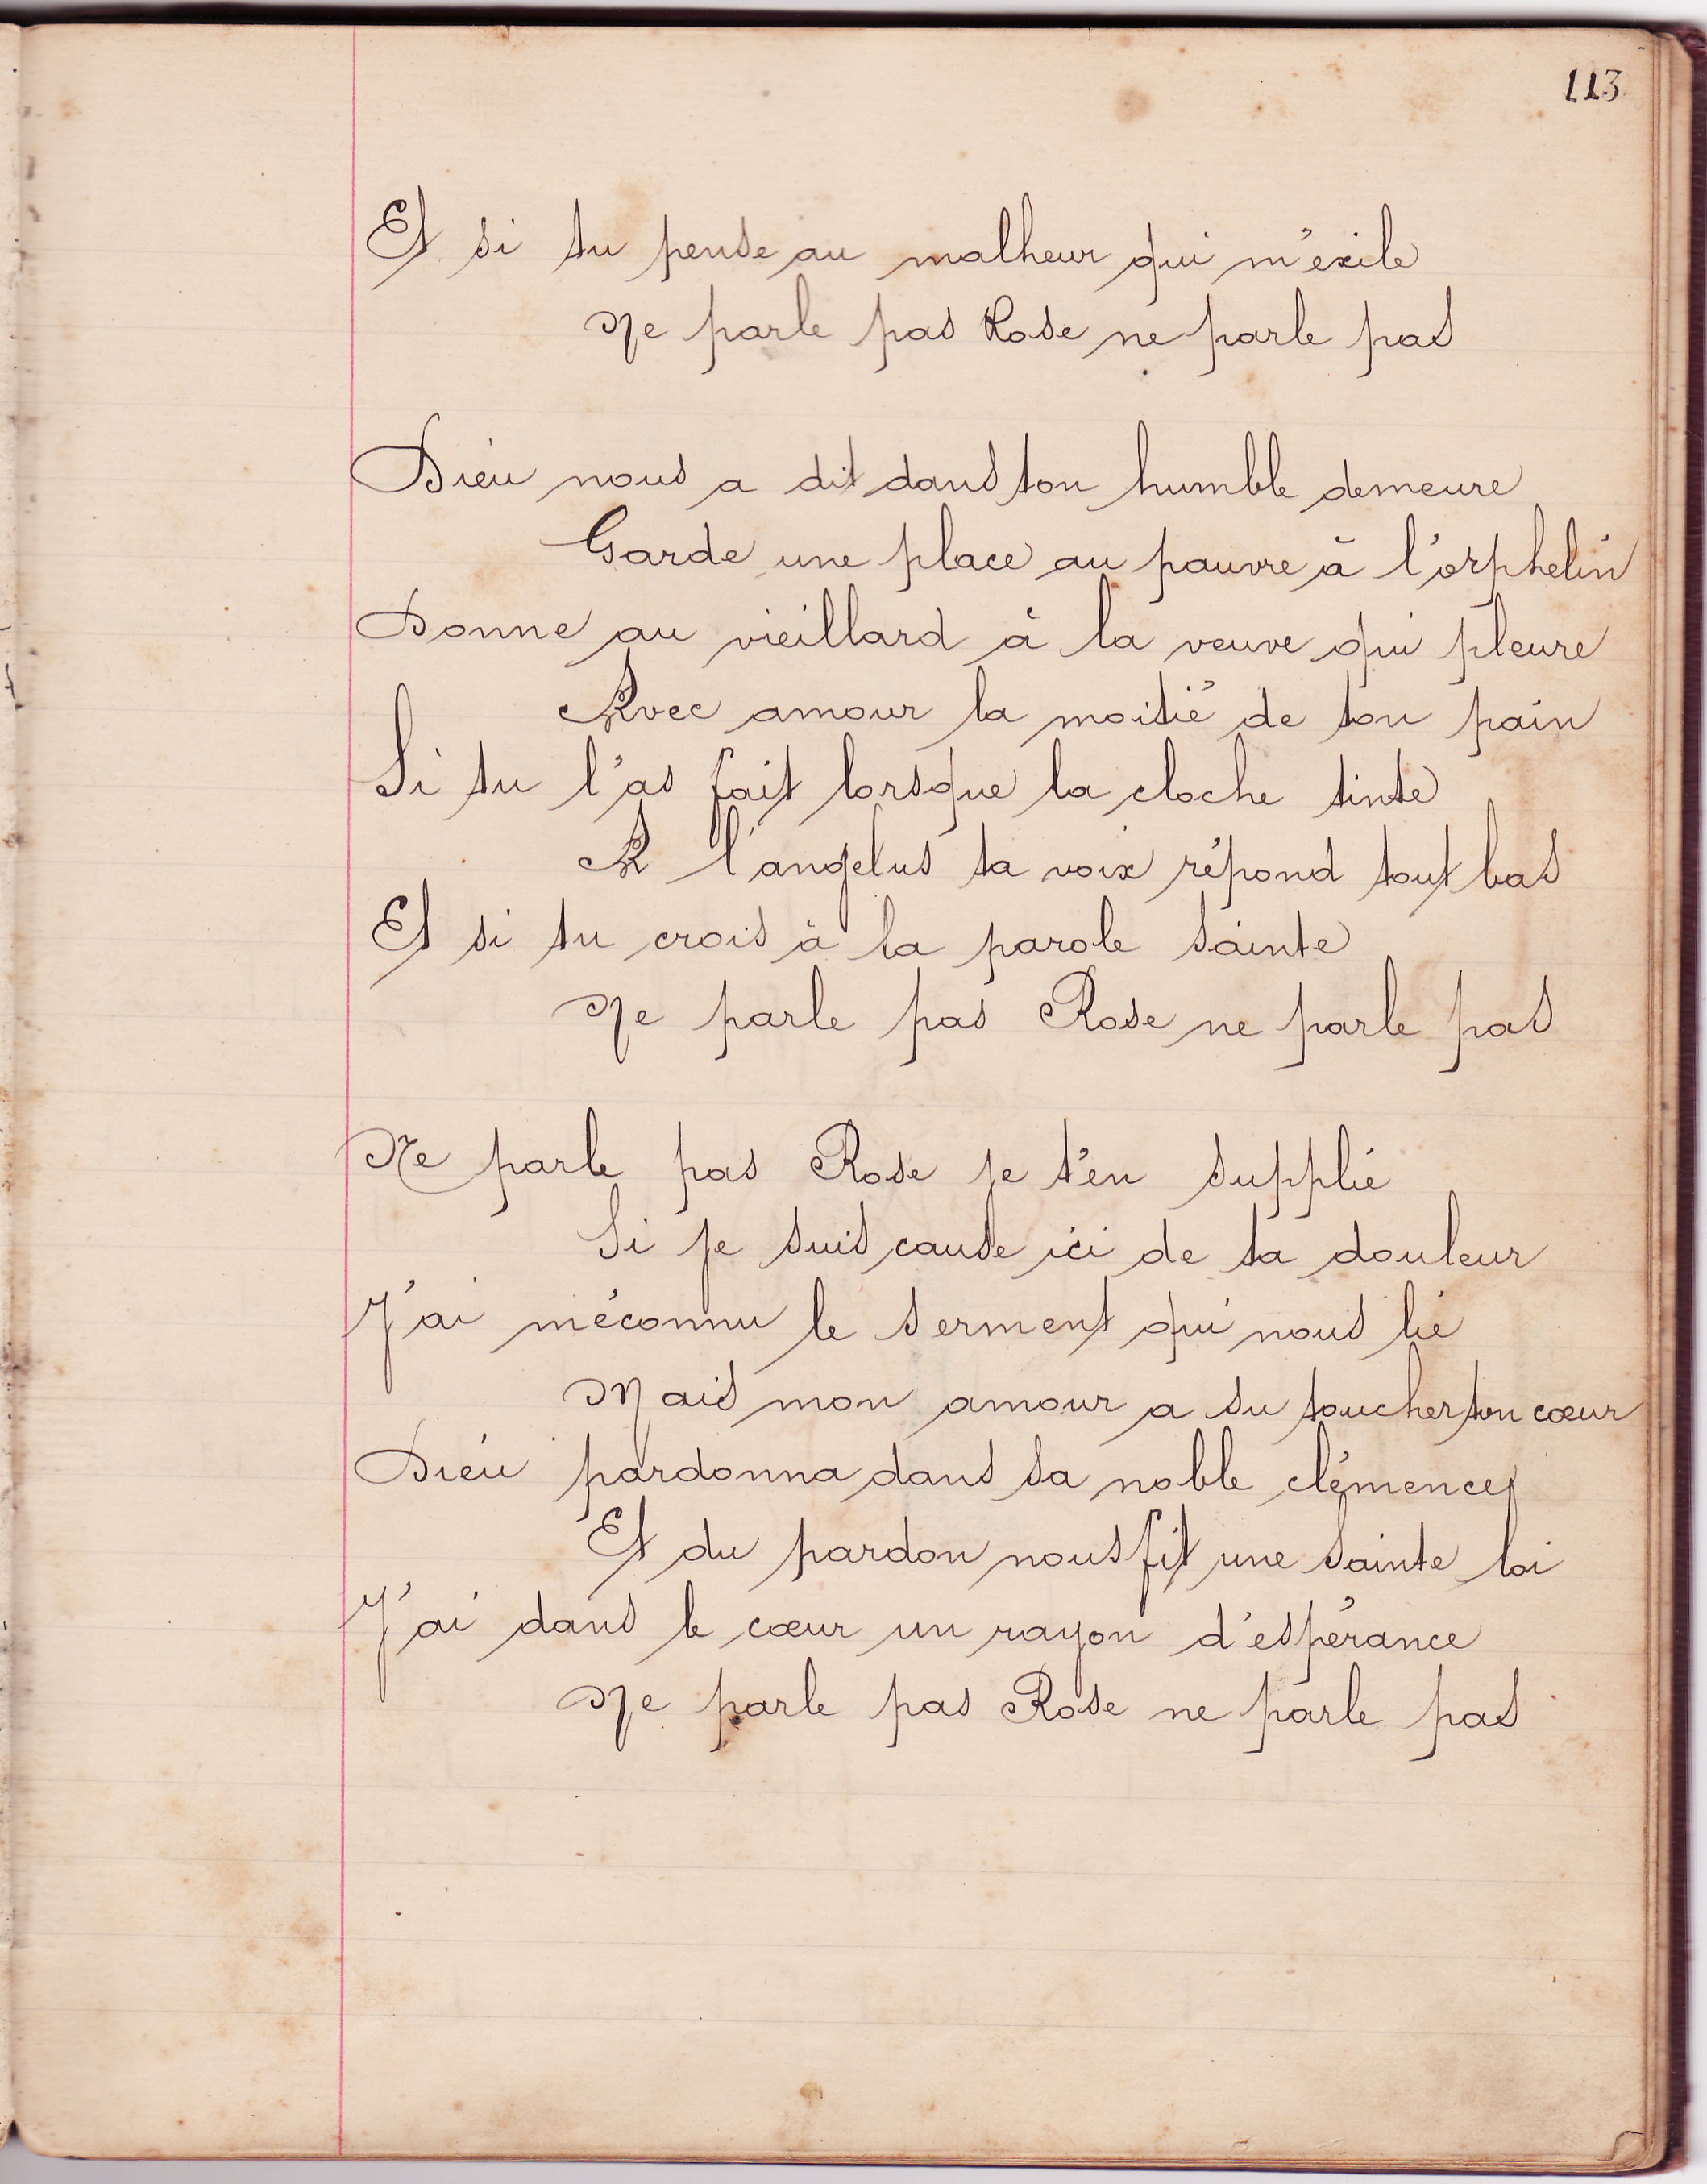 113
Et si tu pense au malheur qui m'exile
Ne parle pas Rose ne parle pas
Dieu nous a dit dans ton humble demeure
Garde une place au pauvre à l'orphelin
Donne au vieillard à la veuve qui pleure
Avec amour la moitié de ton pain
Si tu l'as fait lorsque la cloche tinte
A l'angelus ta voix répond tout bas
Et si tu crois à la parole sainte
Ne parle pas Rose ne parle pas
Ne parle pas Rose je t'en supplie
Si je suis cause ici de ta douleur
J'ai méconnu le serment qui nous lie
Mais mon amour a su toucher ton cœur
Dieu pardonna dans sa noble clémence
Et du pardon nous fit une sainte loi
J'ai dans le cœur un rayon d'espérance
Ne parle pas Rose ne parle pas